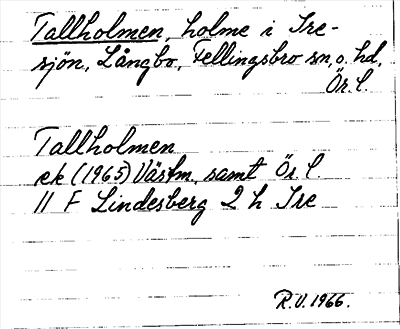 Tallholmen, holme i Tre-
sjön, Långbo, Fellingsbro sn, o. hd,
Ör. l.
Tallholmen
ek (1965) Västm. samt Ör. l.
11 F Lindesberg 2 h Tre
R.V. 1966.